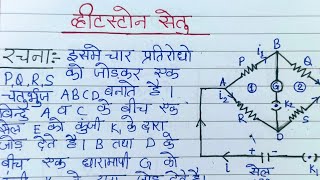 व्हीटस्टोन सेतु
रचना:- इसमे चार प्रतिरोधो
P,Q,R,S को जोडकर एक
चतुर्भुज ABCD बनाते हैं।
बिन्दु A व C के बीच एक
सेल E को कुंजी K₁ के द्वारा
जोड देते हैं। B तथा D के
बीच एक धारामापी G को
B
P
Q
i₁
A
①
G
②
i₂
K₂
R
S
D
i
K₁
सेल